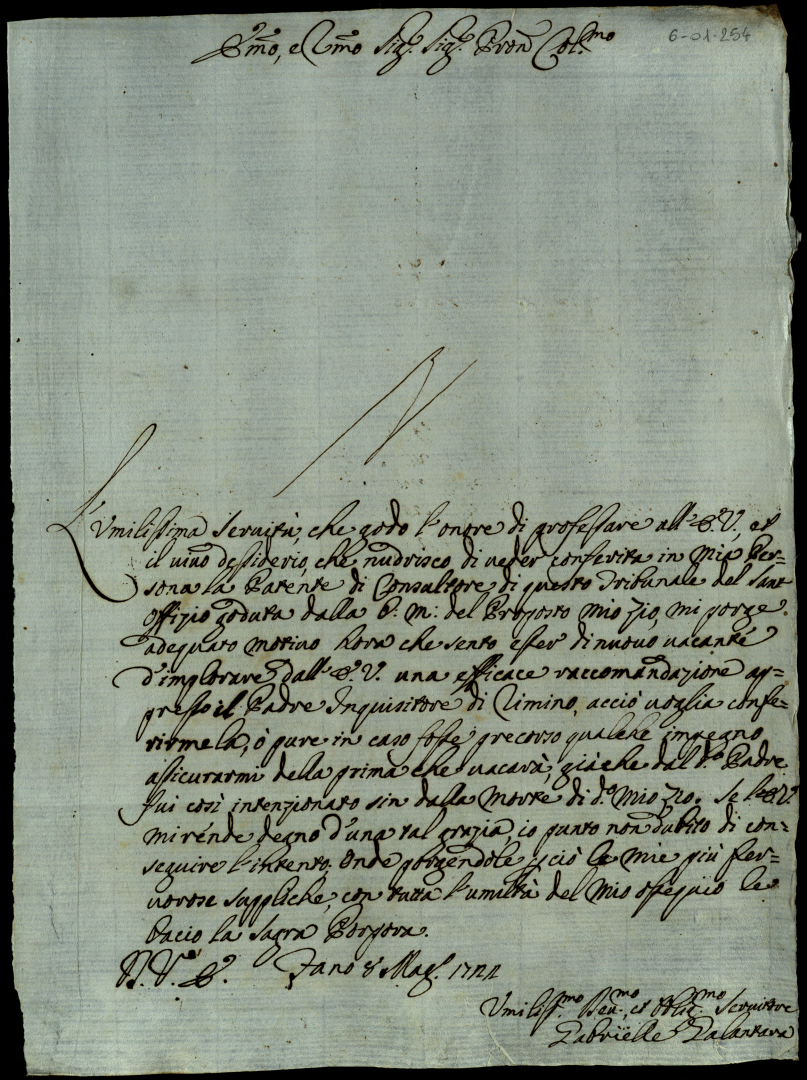 6-01-254
E.mo, e R.mo Sig.r Sig.r Pron Col.mo
L'umilissima servitù, che godo l'onore di professare all'E.V., et
il vivo dessiderio, che nudrisco di veder conferita in mia Per=
sona la Patente di Consultore di questo Tribunale del Sant
Offizio goduta dalla b. m: del Proposto mio Zio, mi porge
adequato motivo hora che sento esser di nuovo vacante
d'implorare dall'E.V. una efficace raccomandazione ap=
presso il Padre Inquisitore di Rimino, acciò voglia confe=
rirmela, ò pure in caso fosse precorso qualche impegno
assicurarmi della prima che vacarà, giache dal d.o Padre
fui così intenzionato sin dalla morte di d.o mio Zio. Se l'E.V.
mi rende degno d'una tal grazia, io punto non dubito di con=
seguire l'intento. Onde porgendole perciò le mie più fer=
vorose suppliche, con tutta l'umiltà del mio ossequio le
bacio la Sagra Porpora.
Di V.E. Fano 8 Mag.o 1744
Umiliss.mo Dev.mo, et Obblig.mo Servitore
Gabrielle Palantara